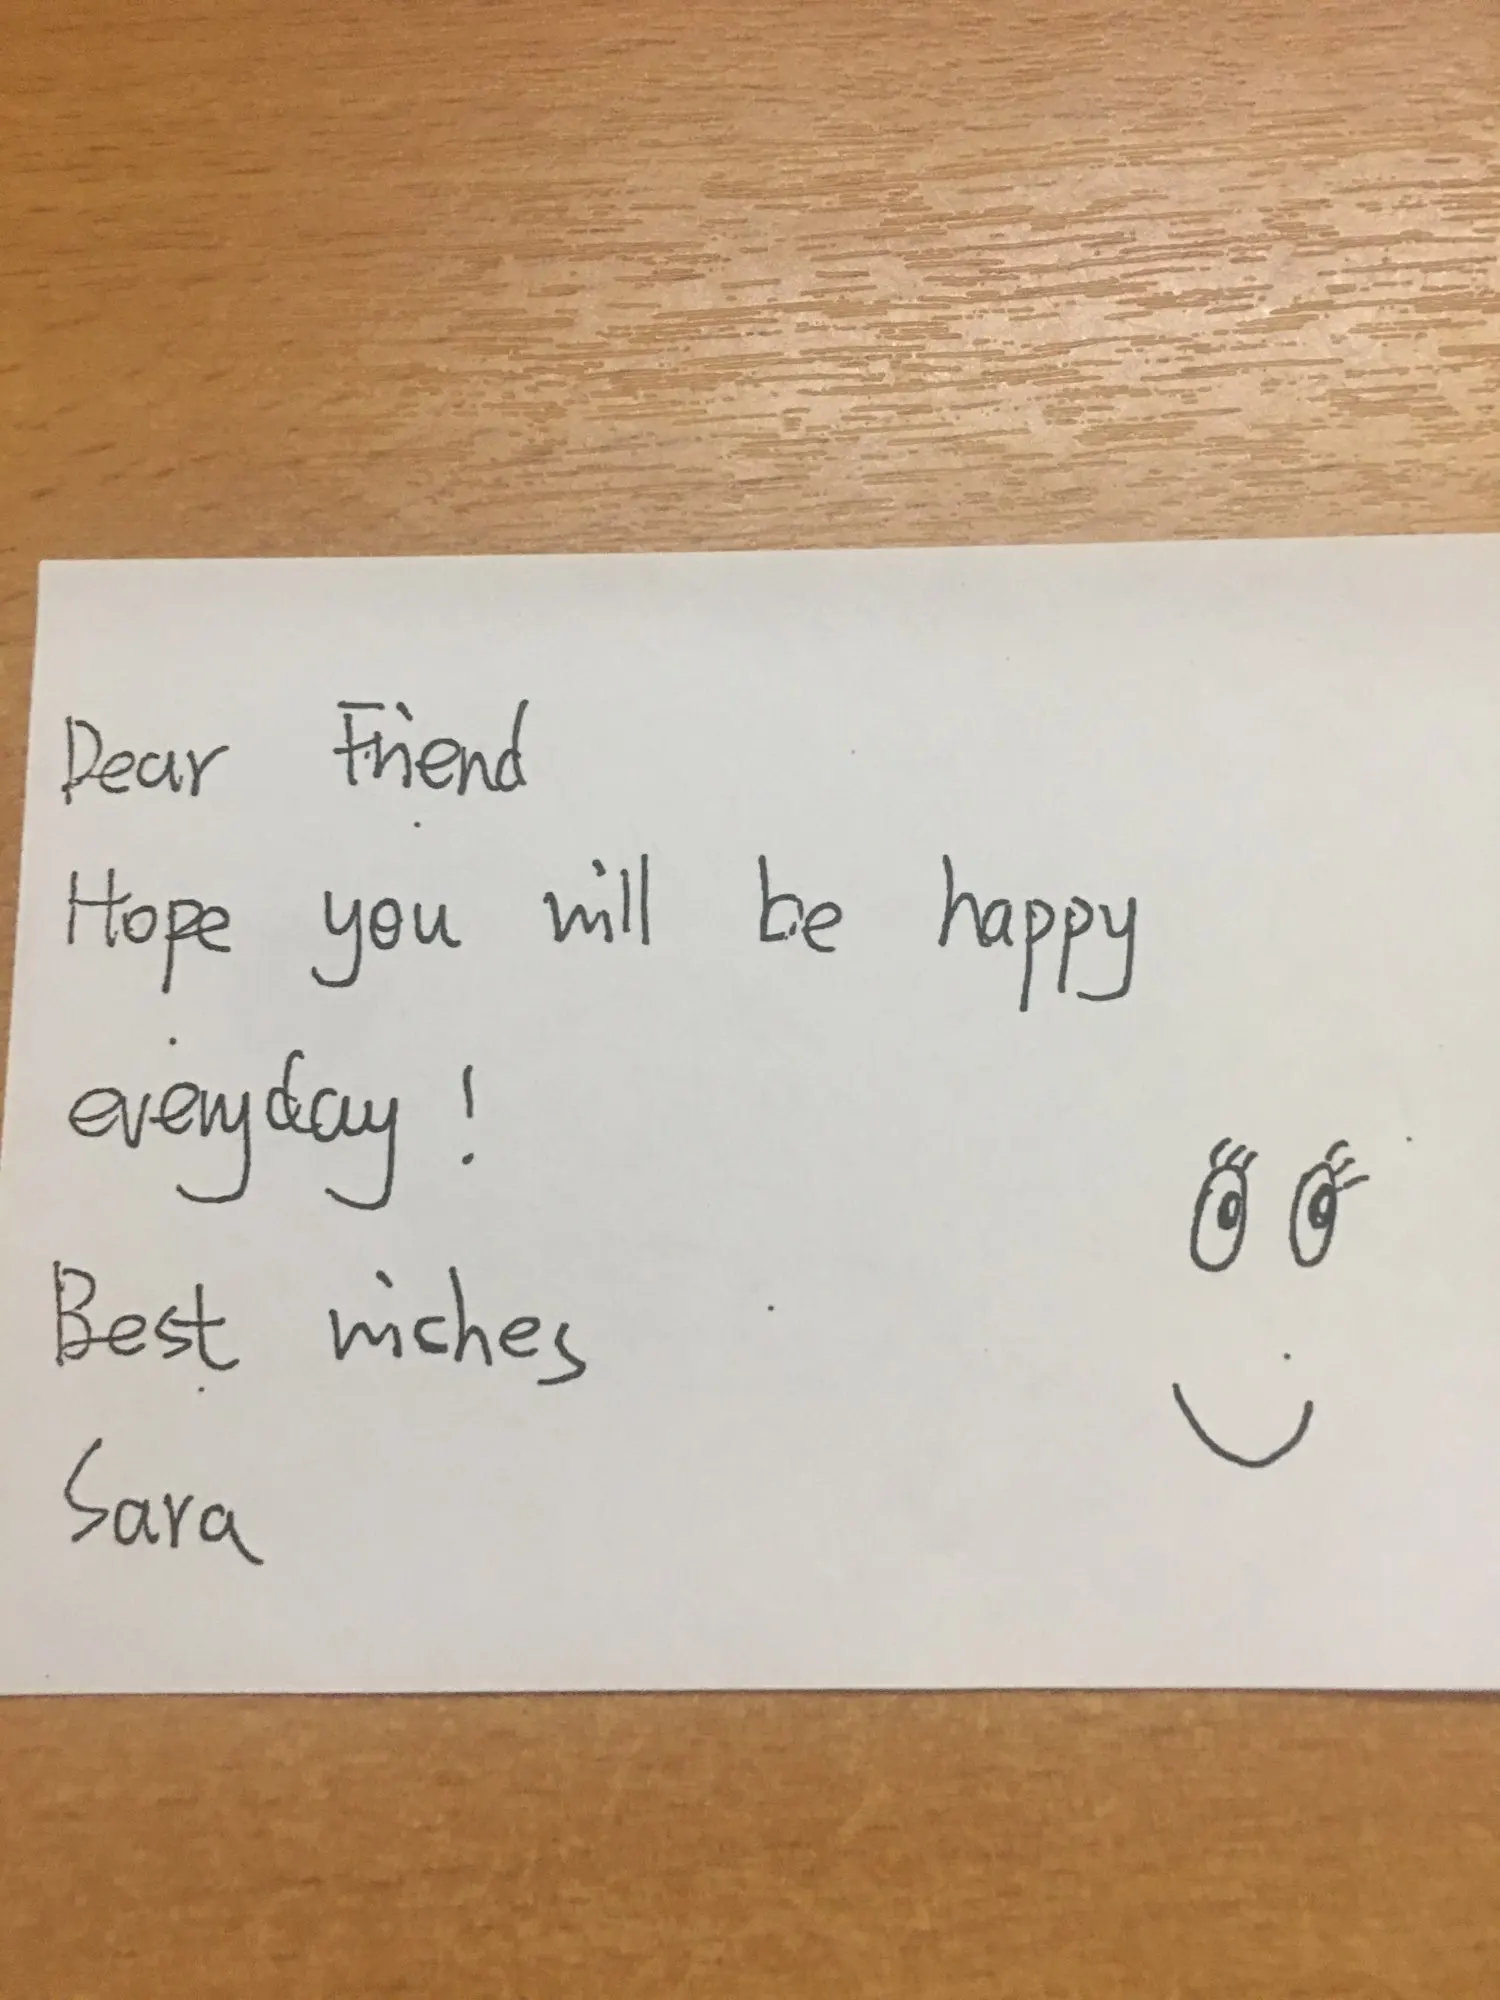 Dear Friend
Hope you will be happy
everyday!
Best wiches
Sara